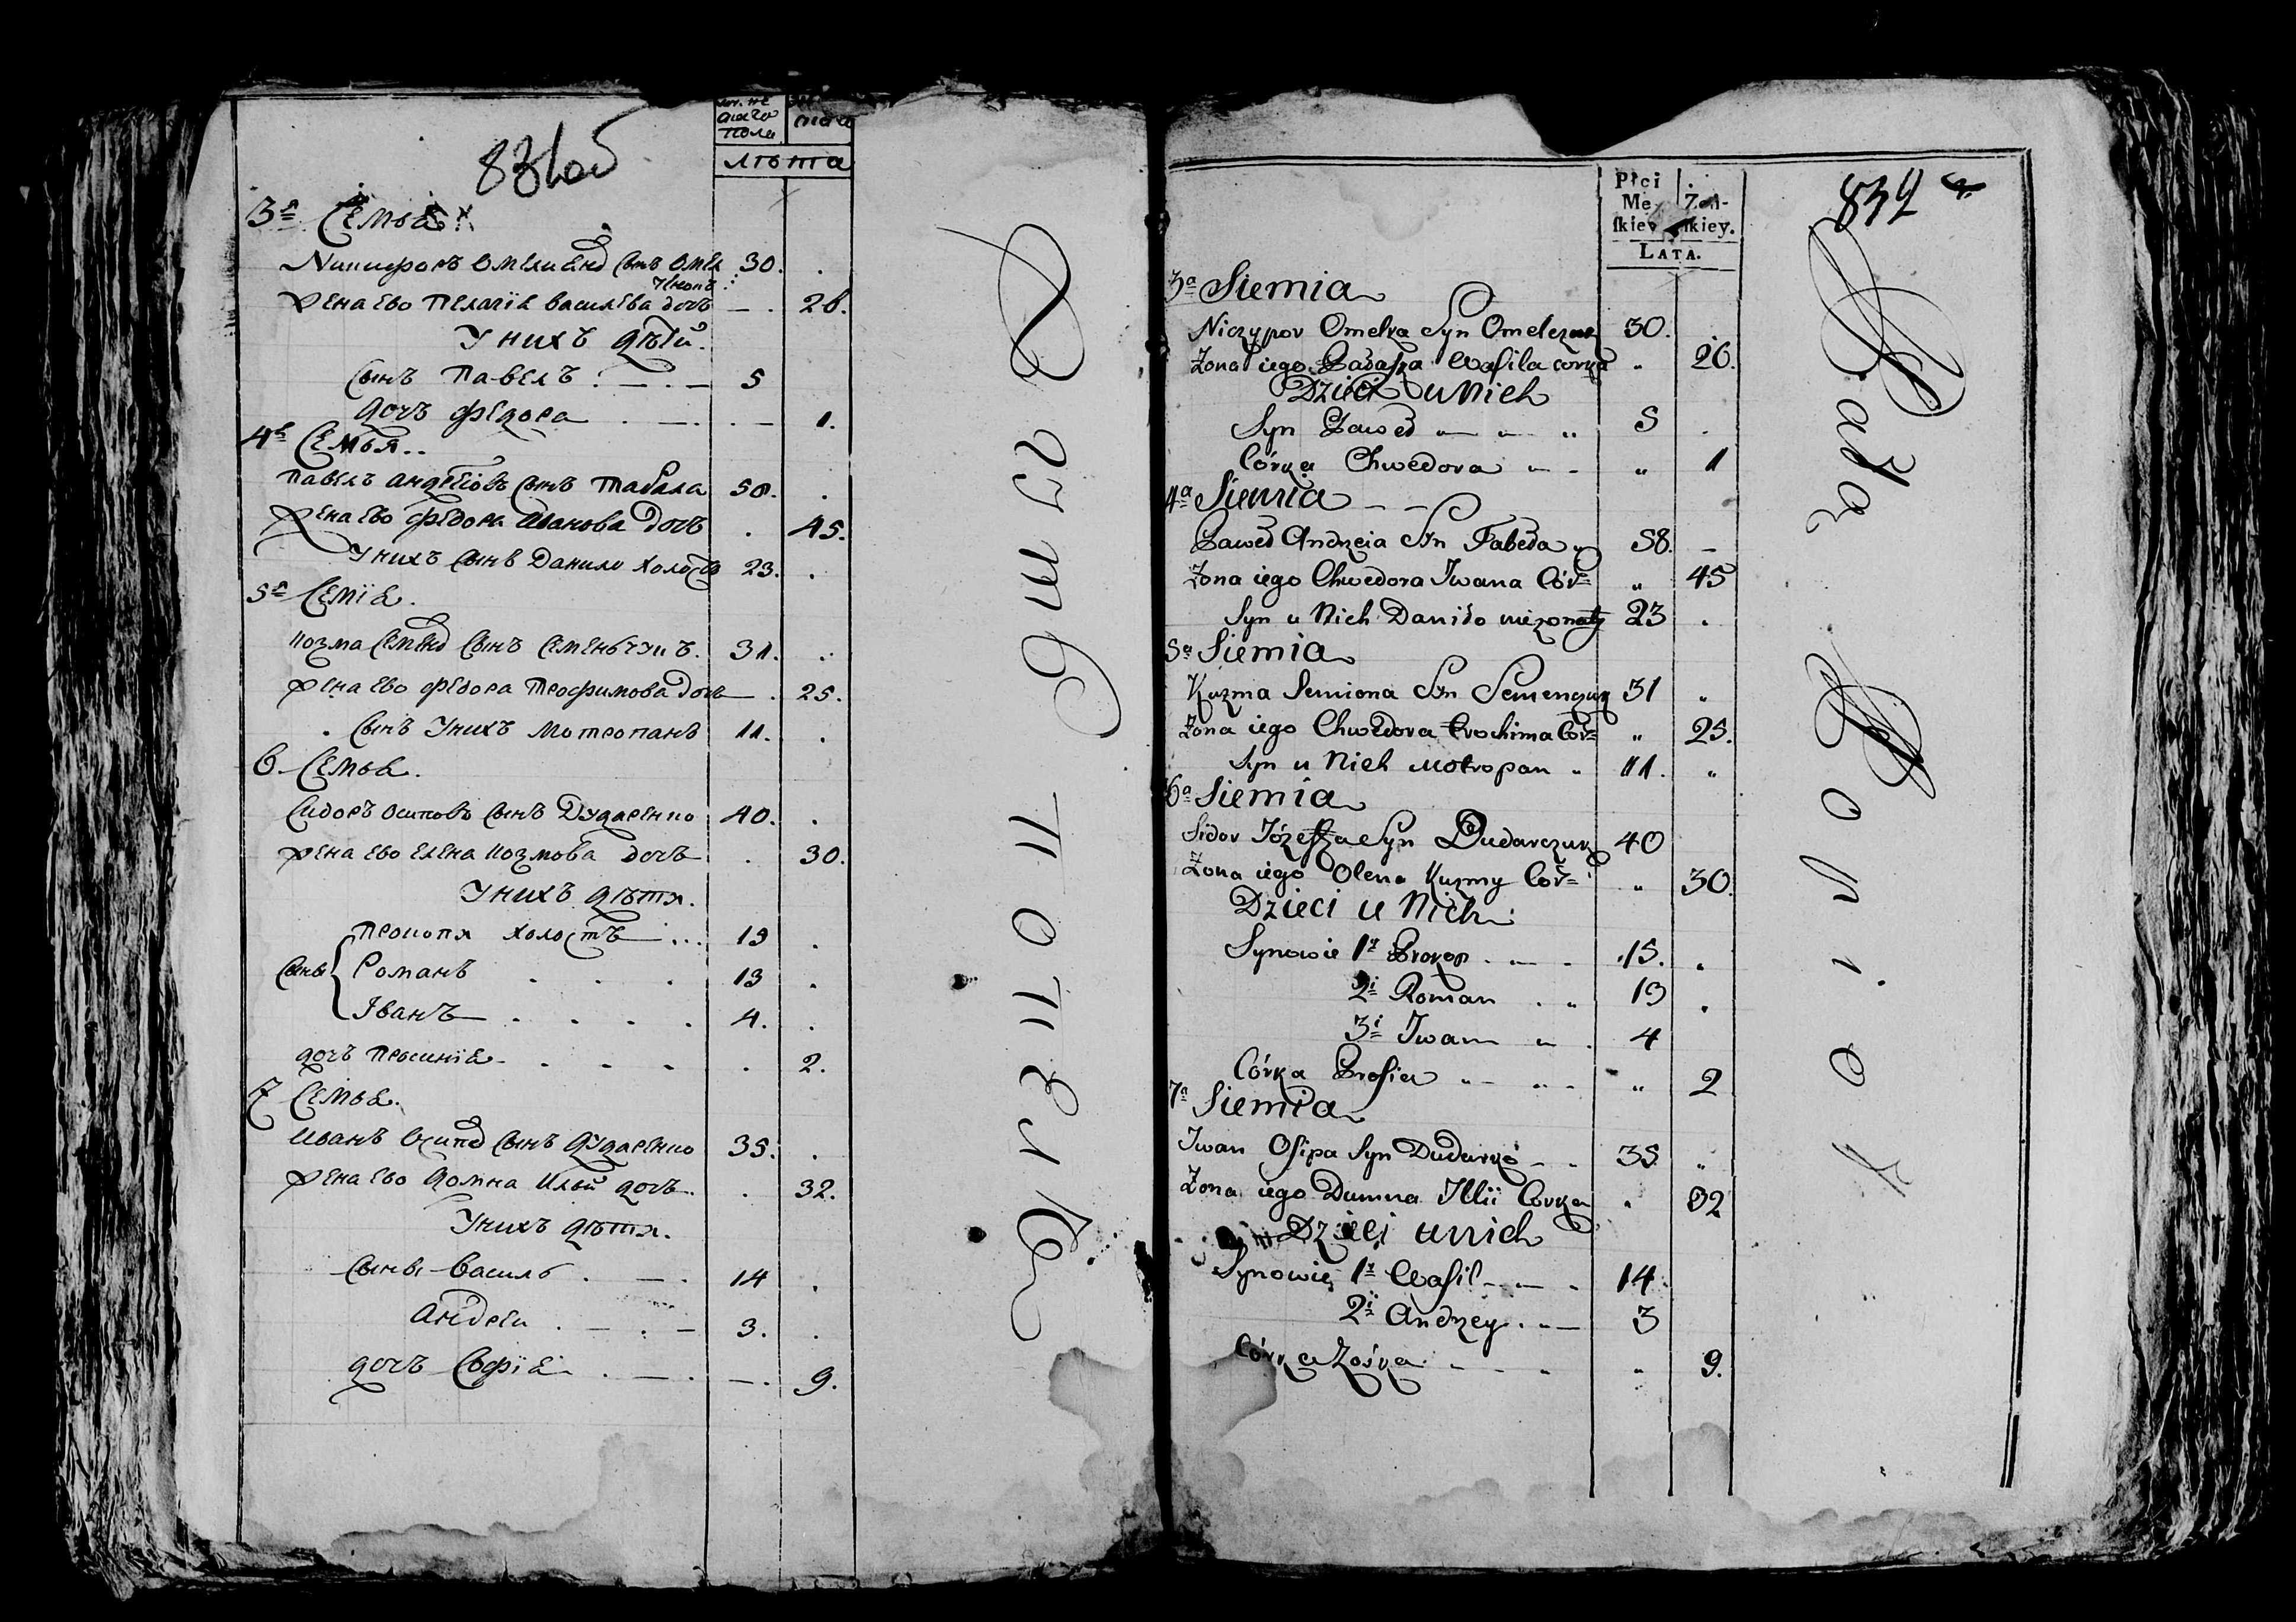 831 об
лѣта
3я Семья
Никифоръ Омелиановъ сынъ Омел
чюкъ 30.
Жена ево Пелагія Васильева дочь 26.
У нихъ дѣти.
Сынъ Павелъ 5
дочь Федора 1.
4я Семья
Павелъ Андреіовъ сынъ Табала 58.
Жена ево Федора Иванова дочь 45.
У нихъ сынъ Данило холостъ 23.
5я Семія.
Козма Семеновъ сынъ Семеньчукъ. 31.
Жена ево Федора Трофимова дочь 25.
Сынъ у нихъ Мотропанъ 11.
6. Семья.
Сидоръ Осиповъ сынъ Дударенко 40.
Жена ево Елена Козмова дочь 30.
У нихъ дѣтя.
Сыны Прокопя холостъ 19
Романъ 13
Іванъ 4.
дочь 2.
7 Семья.
Иванъ Осиповъ сынъ Дударенко 35.
Жена ево Домна Ильи дочь. 32.
У нихъ дѣтя.
Сыны Василь 14
Андреи 3.
дочь Софія 9.
832
Płci
Me- Zeń-
ſkiey ſkiey.
LATA.
3a Siemia
Niczypor Omelka Syn Omelczuk 30.
Żona iego Wasila corka 26.
Dzieci u Nich
Syn Paweł 5
Córka Chwedora 1
4a Siemia
Paweł Andrzeia Syn Tabeła 58.
Żona iego Chwedora Iwana Cór= 45
Syn u Nich Daniło nieżonaty 23
5a Siemia
Kuzma Semiona Syn Semenczuk 31
Żona iego Chwedora Trochima Cór= 25.
Syn u Nich Motropan 11.
6a Siemia
Sidor Józefa Syn Dudarczuk 40
Żona iego Olena Kuzmy Cór= 30.
Dzieci u Nich
Synowie 1y Prokop 15.
2i Roman 13
3i Iwan 4
Córka Prosia 2
7a Siemia
Iwan Osipa Syn Dudarko 35
Żona iego Dumna Illii Corka 32
Dzieci u nich
Synowie 1y Wasil 14.
2i Andrzey 3
Córka Zośka 9.